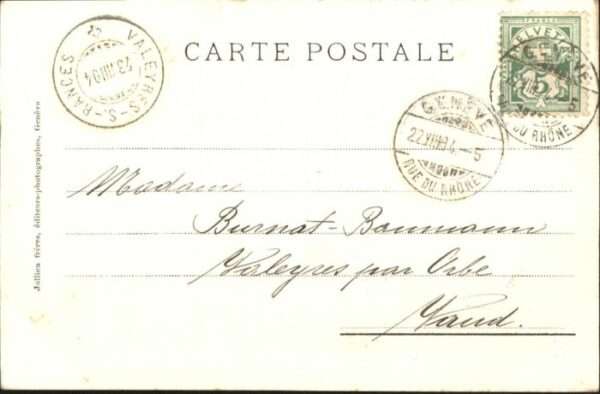 CARTE POSTALE
VALEYRES-S-RANCES
23 VIII 04
HELVETIA
FRANCO
5
GENÈVE
22 VIII 04.-5
RUE DU RHÔNE
GENÈVE
5
RUE DU RHÔNE
Madame
Burnat-Baumann
Valeyres par Orbe
Vaud.
Jullien frères, éditeurs-photographes, Genève